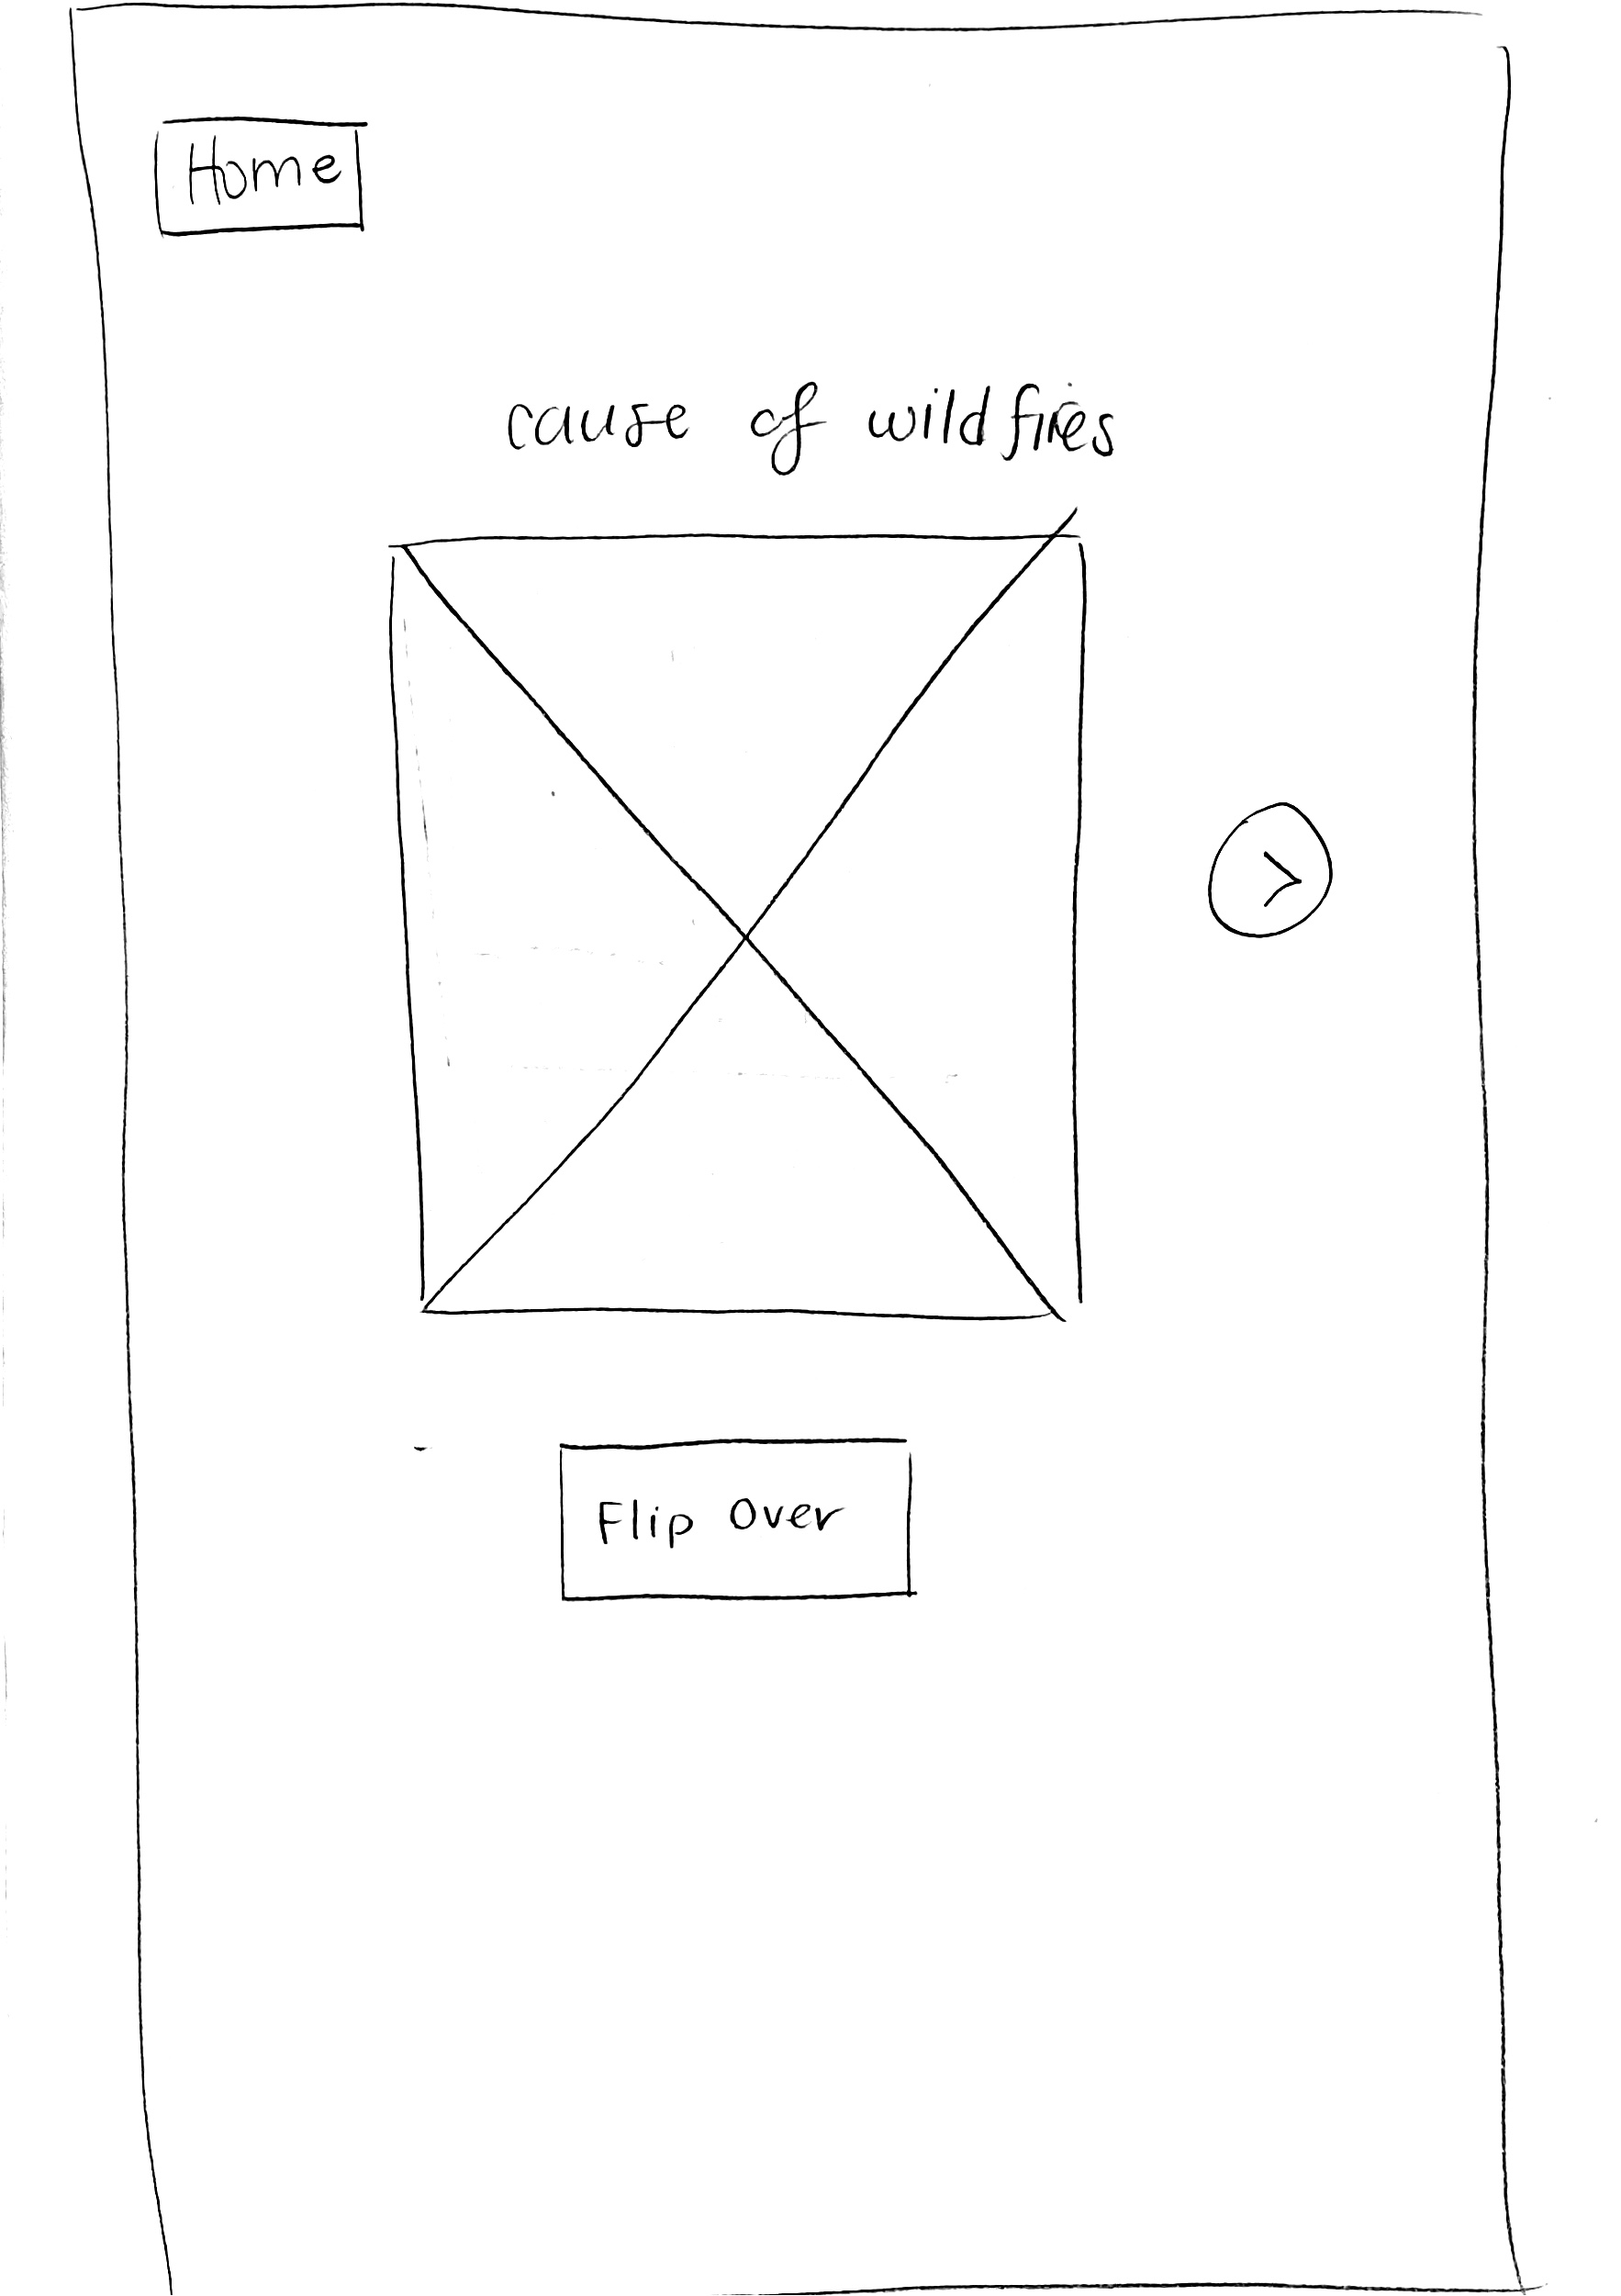 Home
cause of wildfires
>
Flip Over